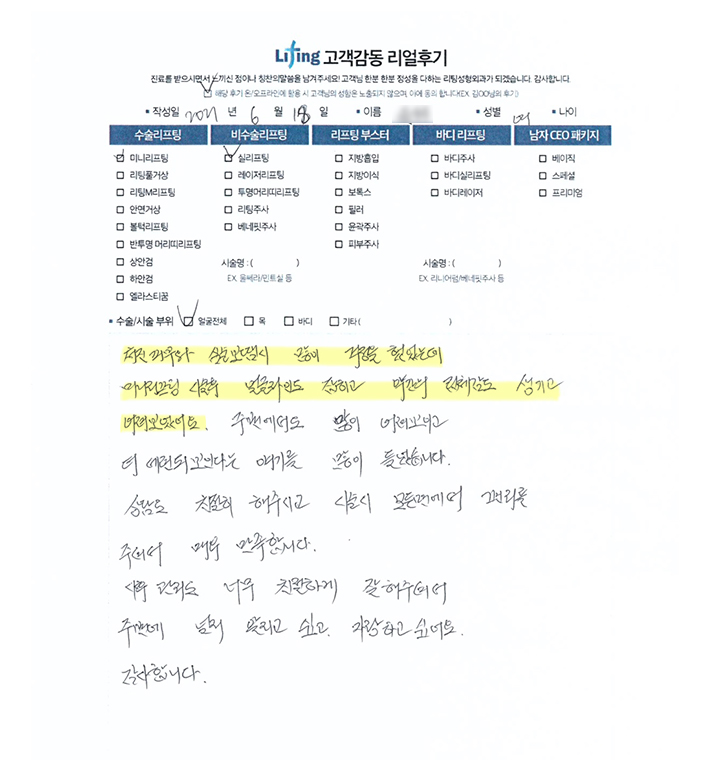 Lifting 고객감동 리얼후기
진료를 받으시면서 느끼신 점이나 칭찬의말씀을 남겨주세요! 고객님 한분 한분 정성을 다하는 리팅성형외과가 되겠습니다. 감사합니다.
해당 후기 온/오프라인에 활용 시 고객님의 성함은 노출되지 않으며, 이에 동의 합니다.(EX. 김OO님의 후기)
작성일 2021 년 6 월 18 일 이름 성별 여 나이
수술리프팅 비수술리프팅 리프팅 부스터 바디 리프팅 남자 CEO 패키지
미니리프팅 실리프팅 지방흡입 바디주사 베이직
리팅풀거상 레이저리프팅 지방이식 바디실리프팅 스페셜
리팅M리프팅 투명머리띠리프팅 보톡스 바디레이저 프리미엄
안면거상 리팅주사 필러
볼턱리프팅 베네핏주사 윤곽주사
반투명 머리띠리프팅 피부주사
상안검 시술명 : ( ) 시술명 : ( )
하안검 EX. 울쎄라/민트실 등 EX. 리니어펌/베네핏주사 등
엘라스티꿈
수술/시술 부위 얼굴전체 목 바디 기타 ( )
많이 걱정을 했었는데
미니리프팅 시술후 얼굴라인도 잡히고 약간의 입체감도 생기고
어려보였어요. 주변에서도 많이 어려보이고
더 세련되보인다는 얘기를 많이 들었습니다.
상담도 친절히 해주시고 시술시 모든면에서 그런리를
주셔서 매우 만족합니다.
사후 관리도 너무 친절하게 잘해주셔서
주변에 널리 알리고 싶고. 자랑하고 싶네요.
감사합니다.